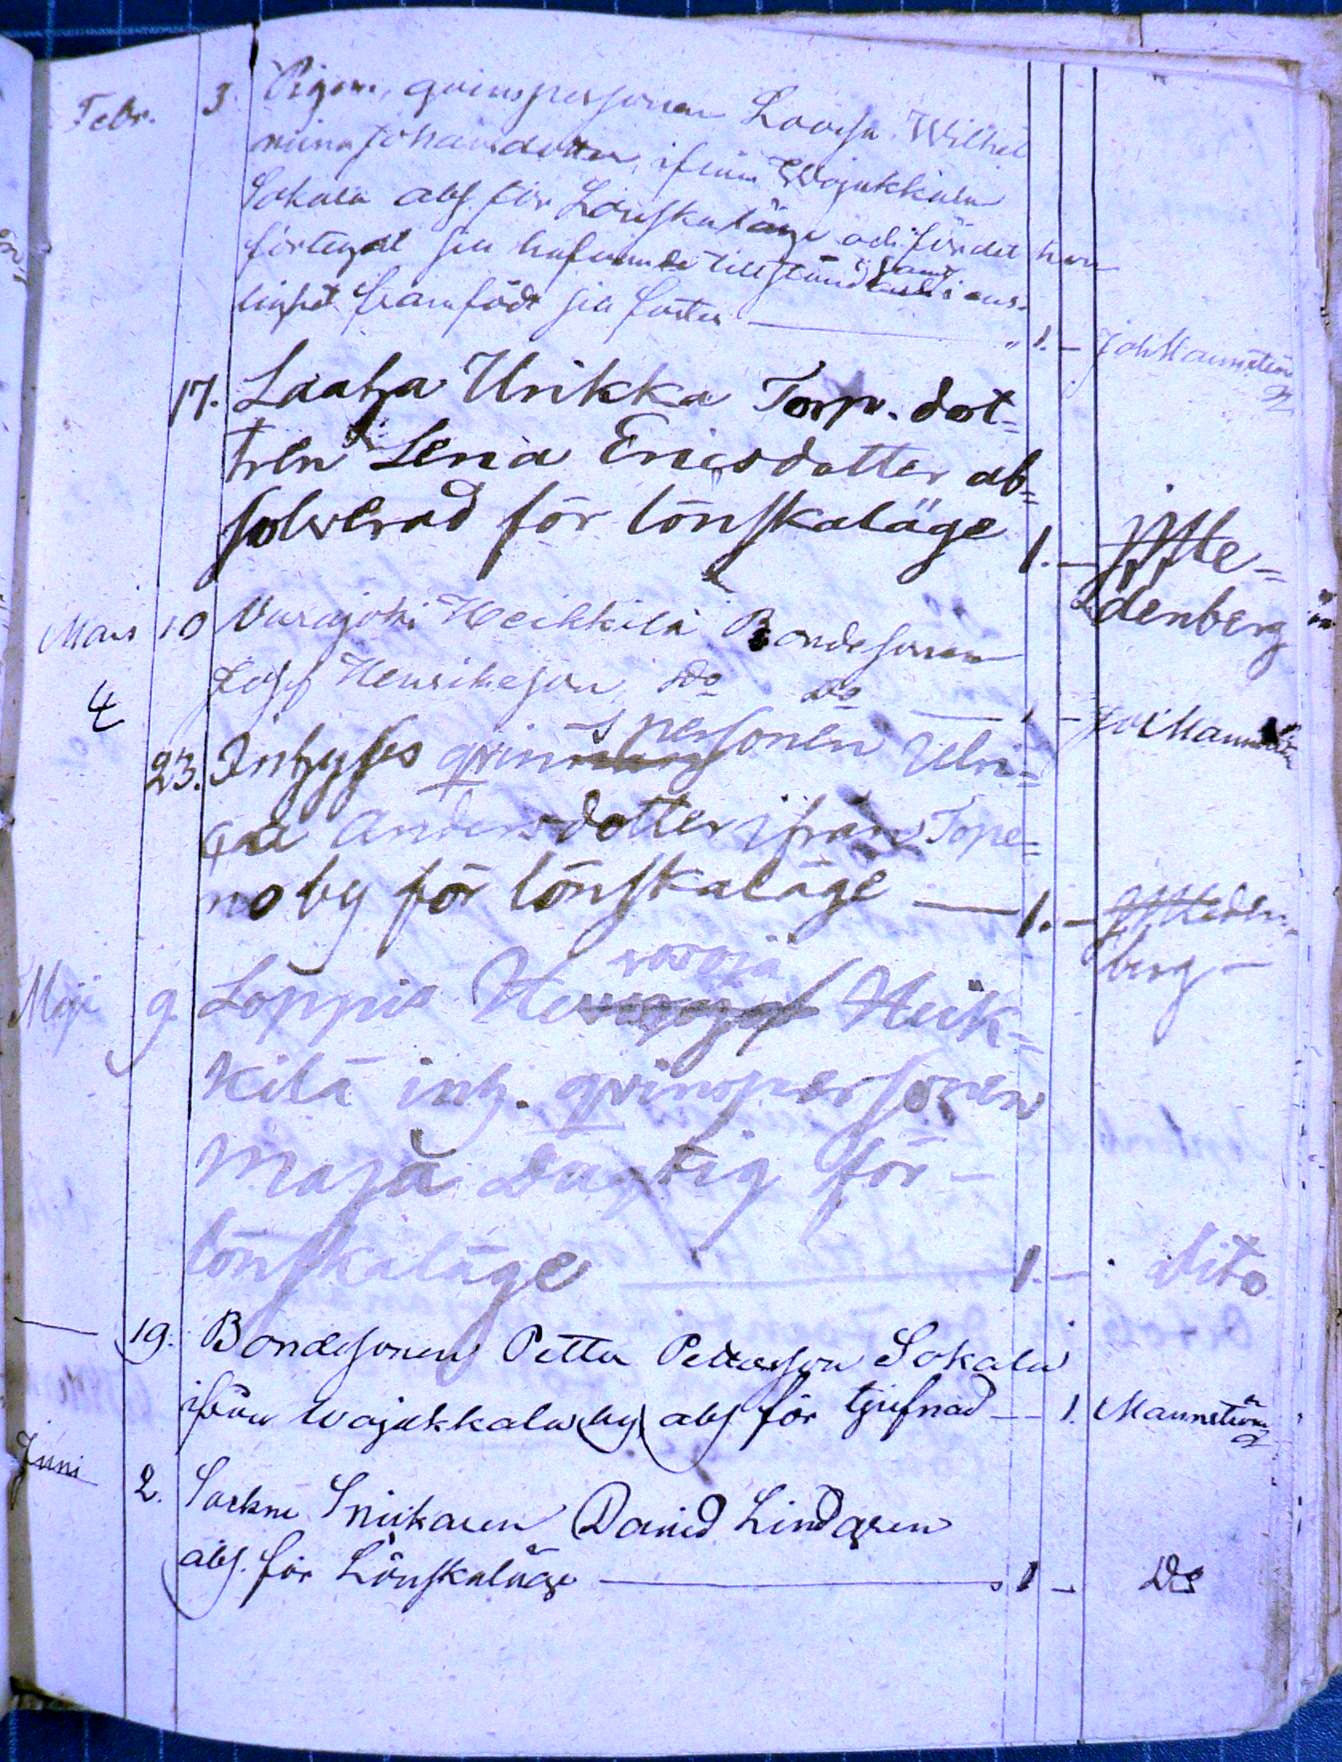 Febr. 3. Pigan, qvinspersonen Lovisa Wilhel
mina Johansdotter, ifrån Wojakkala
Sokala abs. för Lönskaläge och för det hon
förtegat sin hafvande tillstånd samt i
framfödt sin foster 1. -
17. Laaha Urikka Torp. dot=
tren Lena Ericsdotter ab=
solverad för lönskaläge 1. - Ste=
denberg
Mars 10 Heikkilä Bondesonen
Josef Henriksson, do do -
23. Intygses qvinspersonen Ulri=
ca Andersdotter ifrån Tope=
no by för lönskaläge 1. - Steden=
berg
Maji 9. Loppis Heik=
kilä inh. qvinspersonen
Maja Dugtig för
lönskaläge 1. - dito
19. Bondesonen Petter Pettersson Sokala
ifrån Wojakkala by abs. för tjufnad 1. Mannström
Juni 2. Sockne Snickaren David Lindgren
abs. för Lönskaläge 1 - Do